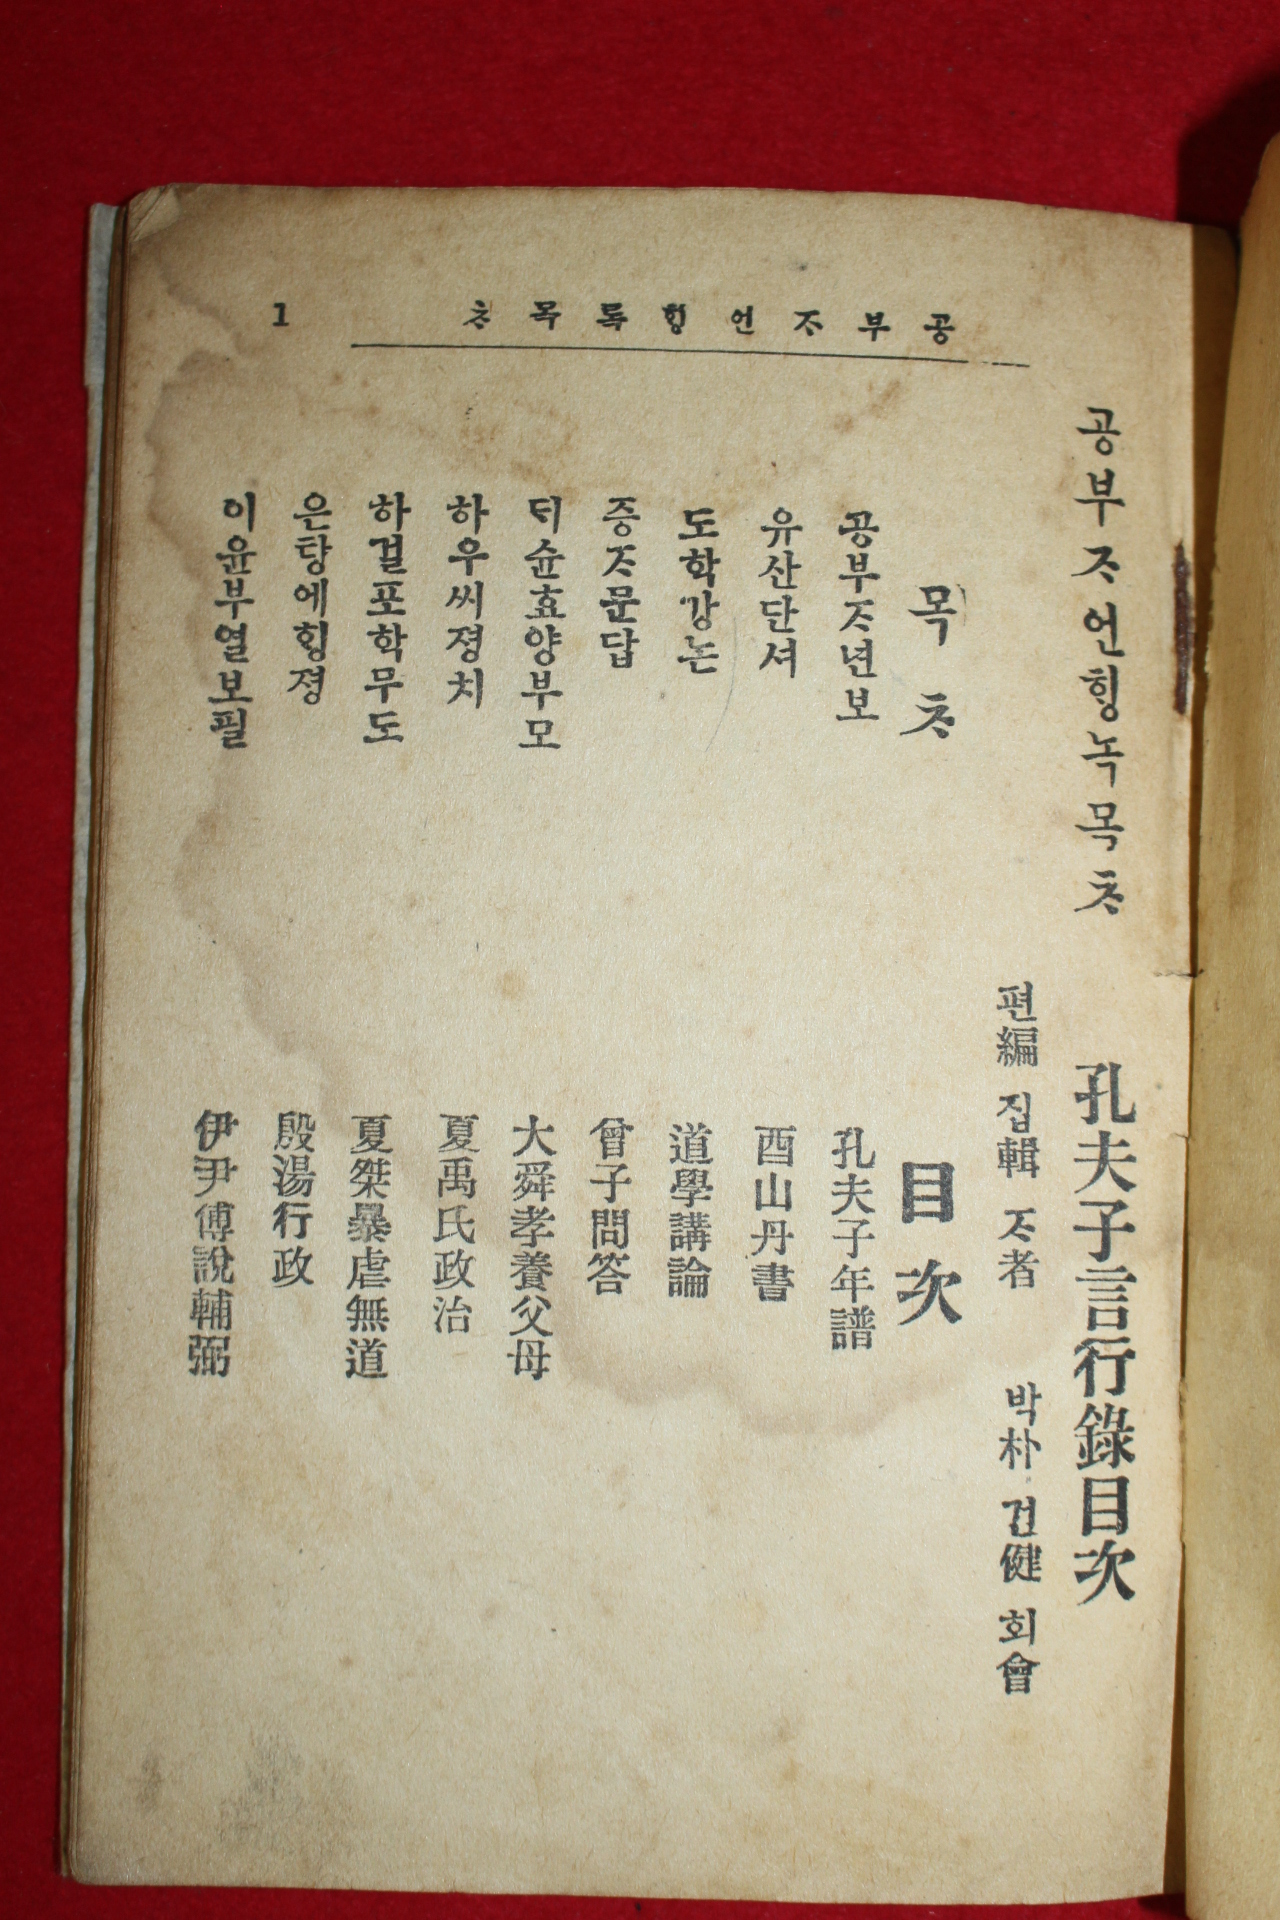 공부ᄌᆞ언ᄒᆡᆼ록목ᄎᆞ
1
공부ᄌᆞ언ᄒᆡᆼ녹목ᄎᆞ 孔夫子言行錄目次
편編 집輯 ᄌᆞ者 박朴 건健 회會
목ᄎᆞ 目次
공부ᄌᆞ년보 孔夫子年譜
유산단셔 酉山丹書
도학강논 道學講論
증ᄌᆞ문답 曾子問答
ᄃᆡ슌효양부모 大舜孝養父母
하우씨졍치 夏禹氏政治
하걸포학무도 夏桀暴虐無道
은탕에ᄒᆡᆼ졍 殷湯行政
이윤부열보필 伊尹傅說輔弼